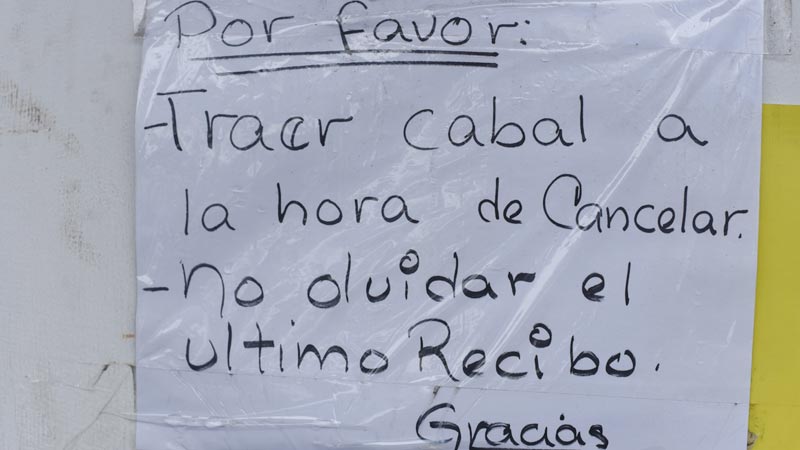 Por favor:
-Traer cabal a
la hora de Cancelar.
-no olvidar el
ultimo Recibo.
Gracias